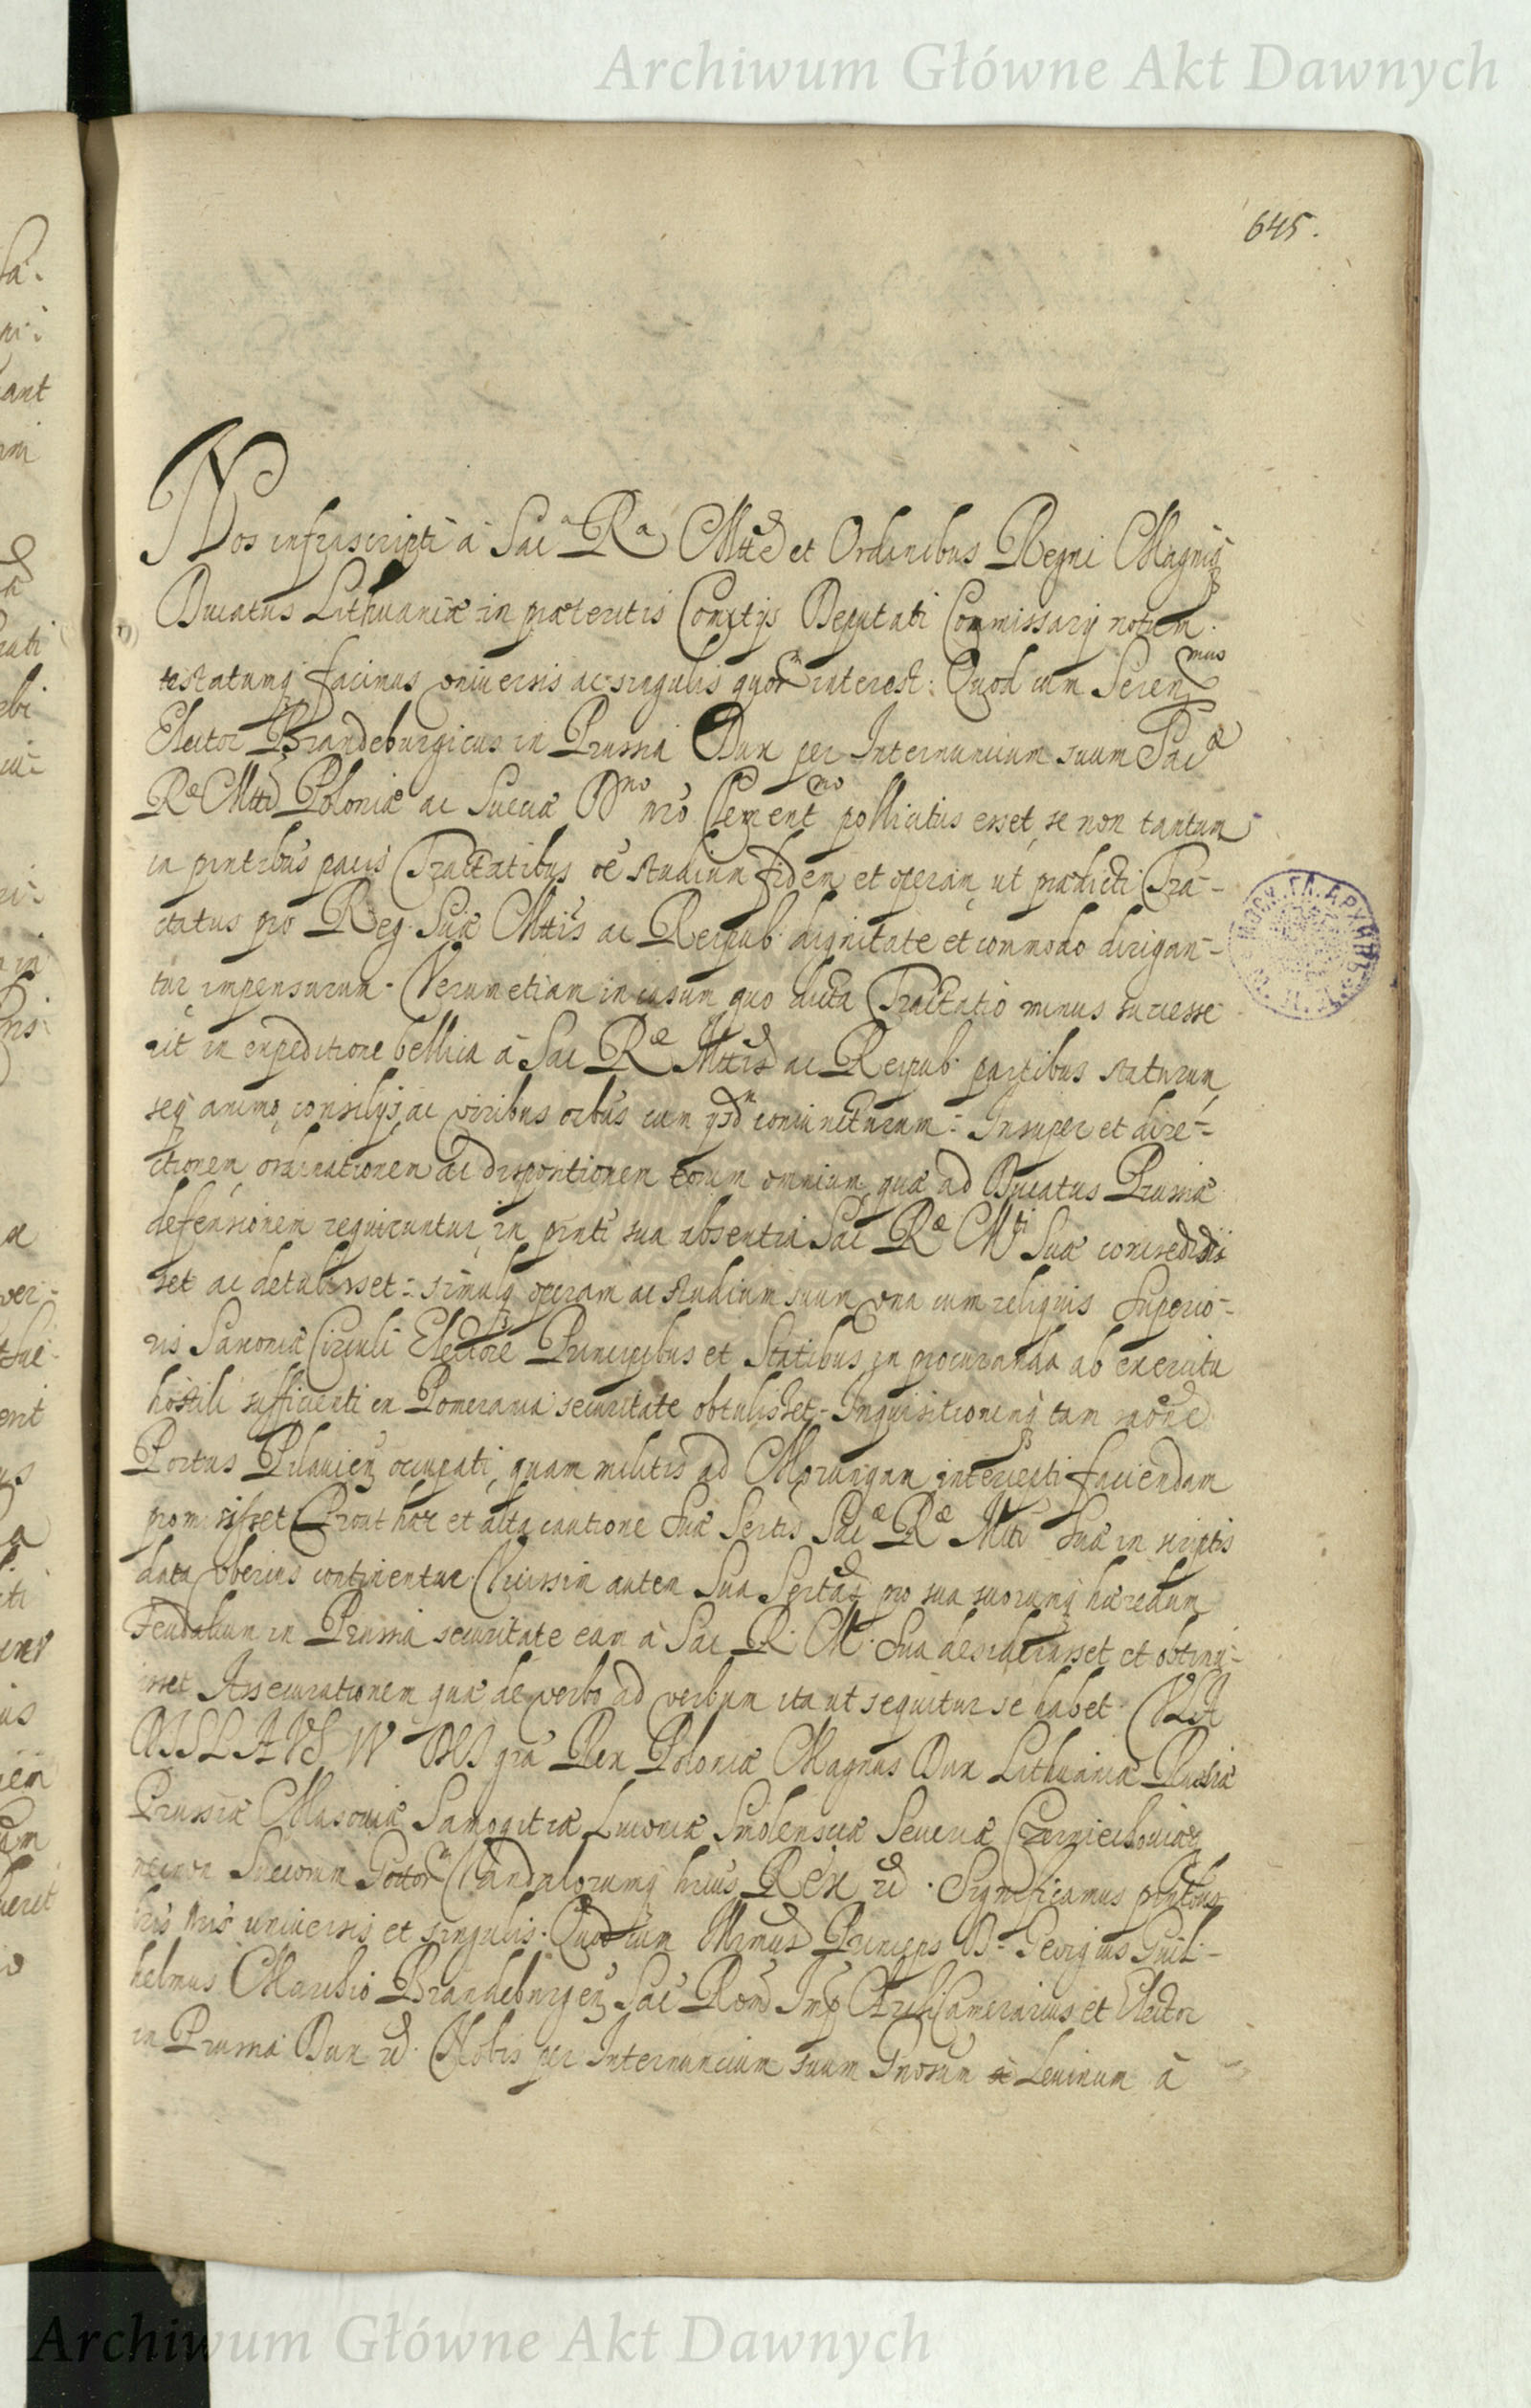 Archiwum Główne Akt Dawnych
645.
Nos infrascripti à Sac^a R^a Mtte et Ordinibus Regni Magniq
Ducatus Lithuaniæ in præteritis Comitijs Deputati Commissarij notum
testatumq facimus vniuersis ac singulis quor^m interest: Quod cum Seren^mus
Elector Brandeburgicus in Prussia Dux per Internuncium suum Sac^æ
R^æ Mtti Poloniæ ac Sueciæ D^no nro Clement^mo pollicitus esset, se non tantum
in pntibus pacis Tractatibus oe studium fidem et operam, ut prædicti Tra-
ctatus pro Reg. Suæ Mttis ac Reipub. dignitate et commodo dirigan-
tur, impensurum. Verum etiam in casum quo dicta Tractatio minus successe
rit in expeditione bellica à Sac R^æ Mttis ac Reipub. partibus staturum
seq animo, consilijs, ac viribus oibus cum ijsd^m coniuncturum: Insuper et dire-
ctionem, ordinationem ac dispositionem eorum omnium, quæ ad Ducatus Prussiæ
defensionem requiruntur, in pnti sua absentia Sac R^æ M^ti Suæ concedidis
set ac detulisset: simulq operam ac studium suum vna cum reliquis Superio-
ris Saxoniæ Circuli Elector Principibus et Statibus in procuranda ab exercitu
hostili sufficienti in Pomerania securitate obtulisset. Inquisitionemq tam raone
Portus Pilauien occupati, quam militis ad Morungam interiecti faciendam
promisisset Prout hæc et alta cautione Suæ Sertis Sac^æ R^æ Mtti Suæ in scriptis
data vberius continentur. Vicissim autem Sua Sertas pro sua suorumq hæredum
Feudalium in Prussia securitate eam à Sac R. M. Sua desiderasset et obtinu-
isset Assecurationem quæ de verbo ad verbum ita ut sequitur se habet. VLA
DISLAVS IV DEI gra Rex Poloniæ Magnus Dux Lithuaniæ Russiæ
Prussiæ Masouiæ Samogitiæ Liuoniæ Smolensciæ Seueriæ Czerniechouiæq
necnon Suecorum Gottor^m Vandalorumq hrius Rex &. Significamus pntibus
lris nris uniuersis et singulis. Quod cum Illrimus Princeps D. Georgius Guil-
helmus Marchio Brandeburgen Sac Rom Imp ArchiCamerarius et Elector
in Prussia Dux &. Nobis per Internuncium suum Gnosum Leuinum à
Archiwum Główne Akt Dawnych